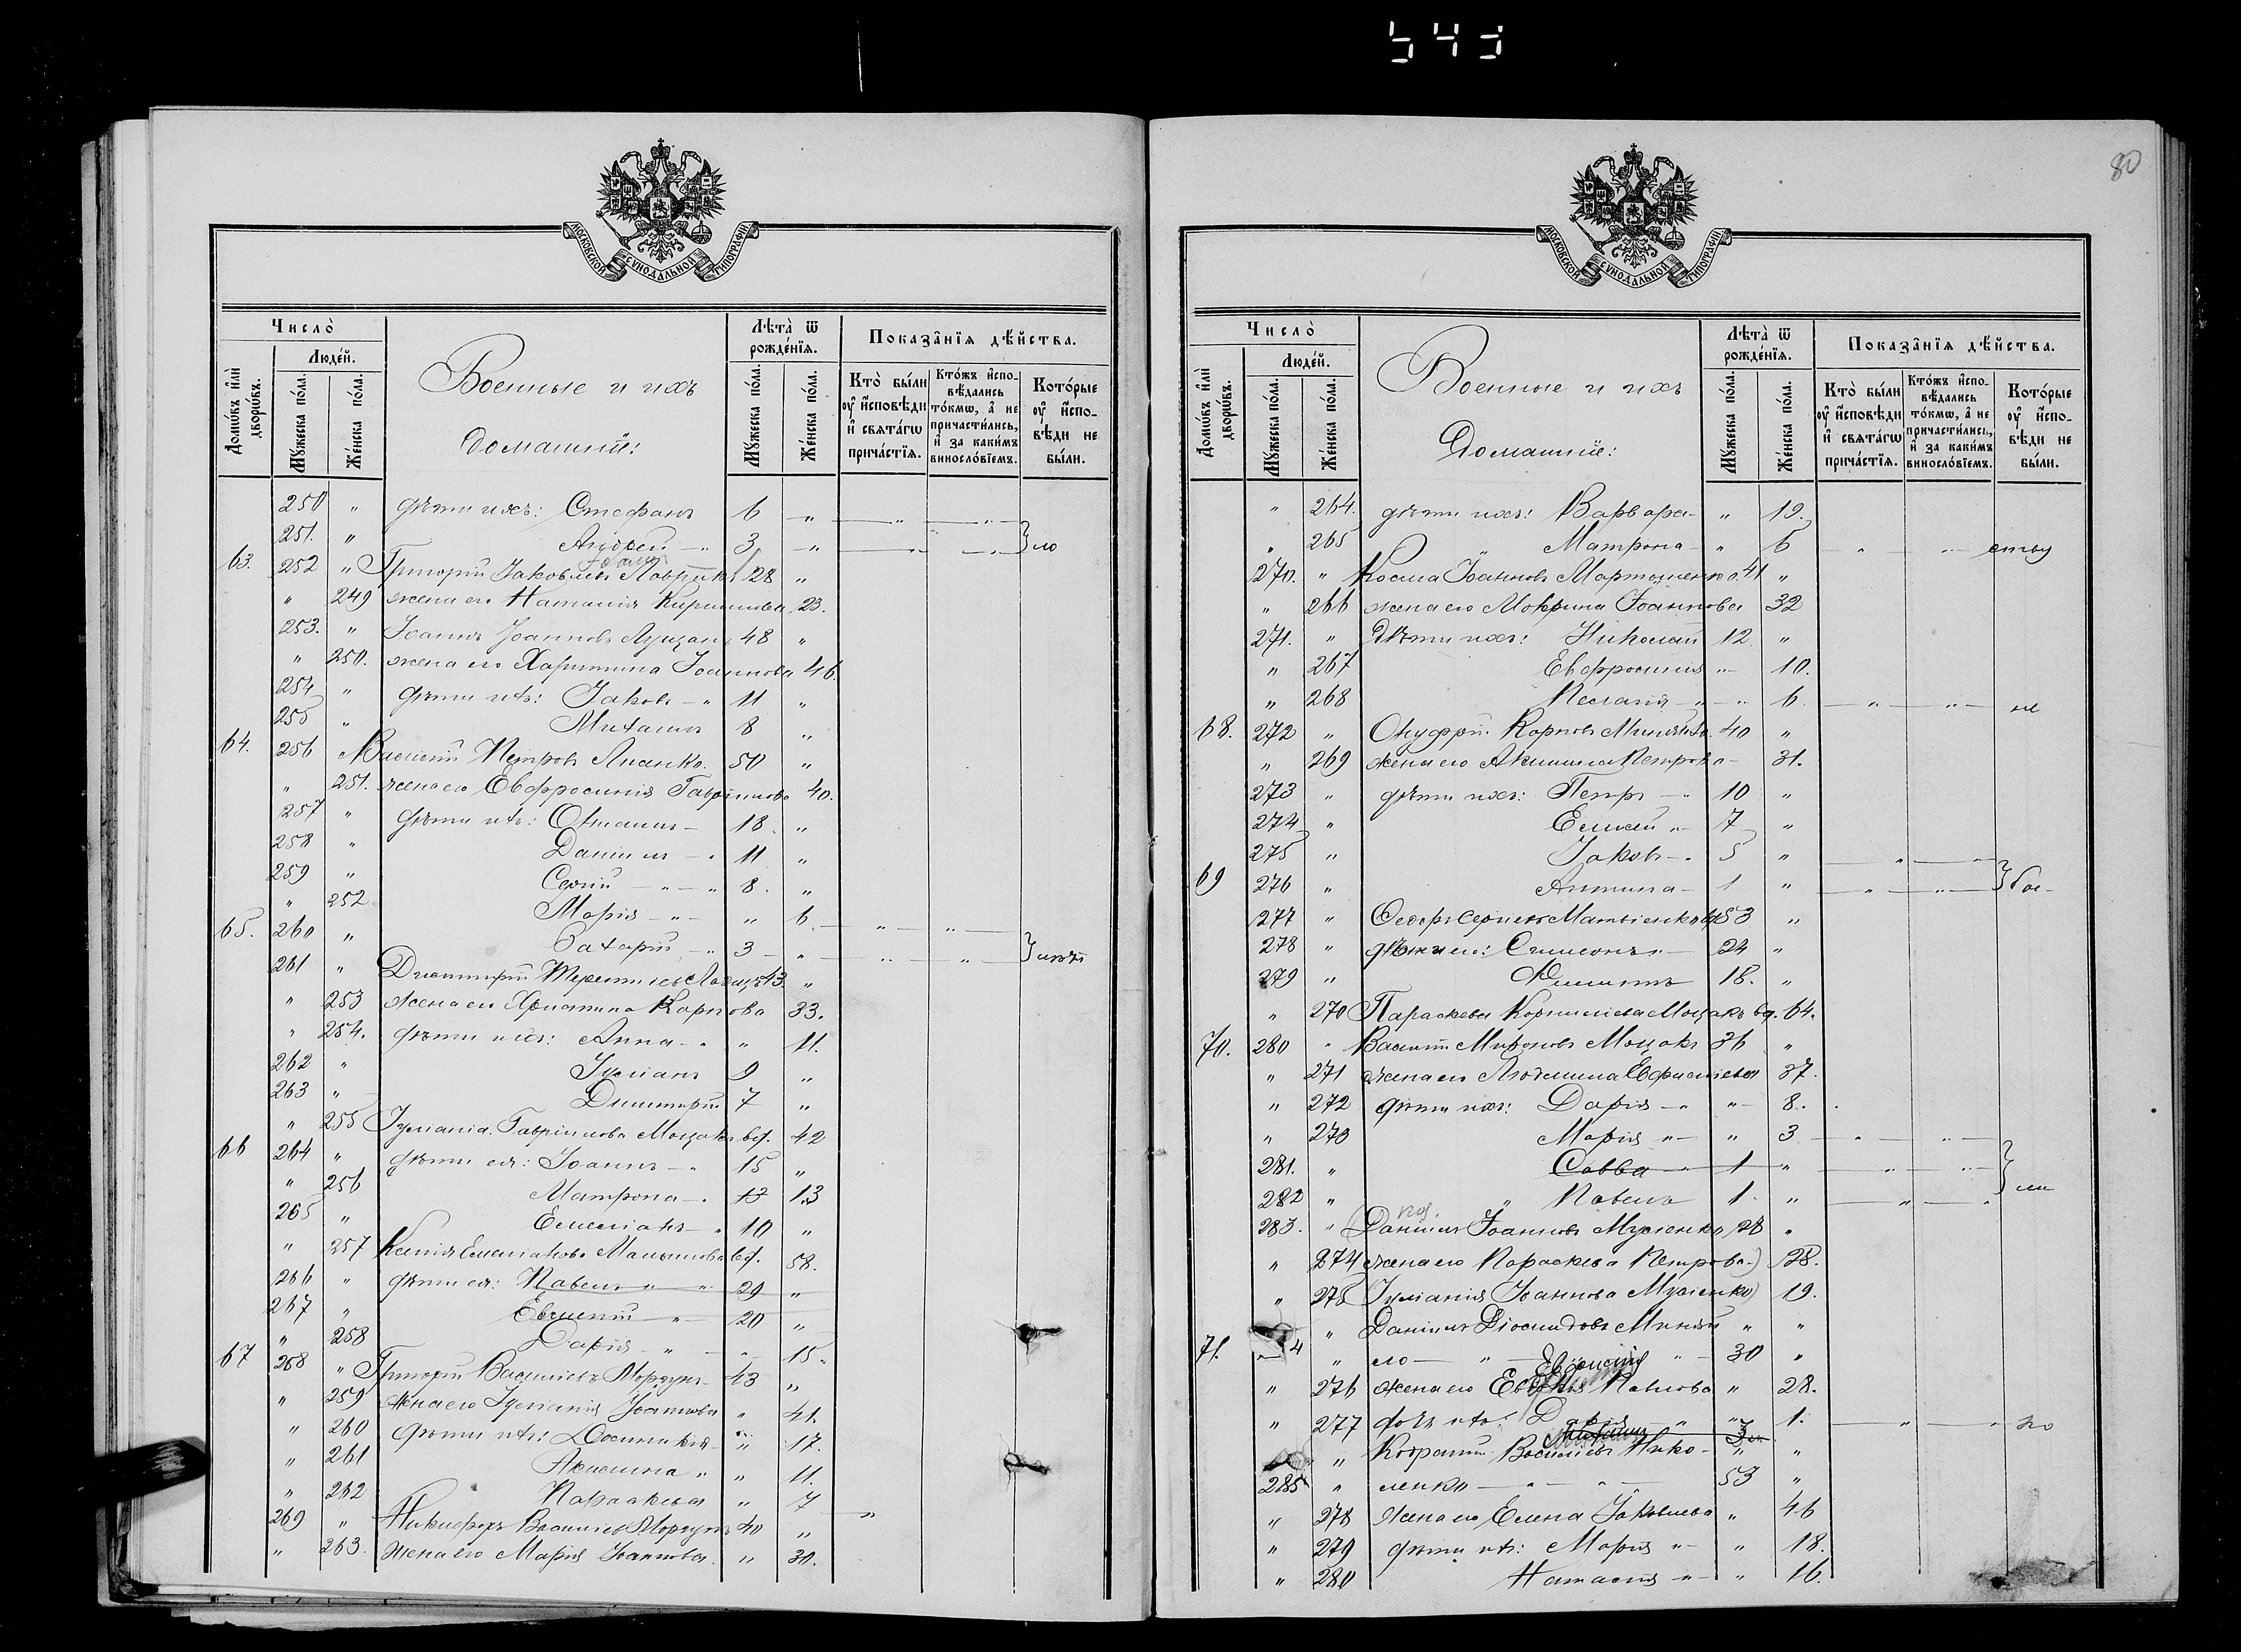 543
МОСКОВСКОЙ СѴНОДАЛЬНОЙ ТИПОГРАФІИ
Число̀
Люде́й.
Домѡ́въ и҆лѝ дворѡ́въ.
Мꙋ́жеска по́ла.
Же́нска по́ла.
Военные и ихъ
домашніе:
Лѣта̀ ѿ рожде́нїѧ.
Мꙋ́жеска по́ла.
Же́нска по́ла.
Показа̑нїѧ дѣ́йства.
Кто̀ бы́ли ᲂу҆ и҆сповѣ́ди и҆ свѧта́гѡ прича́стїѧ.
Кто́жъ и҆спо- вѣ́дались то́кмѡ, а҆ не причасти́лись, и҆ за каки́мъ винослові́емъ.
Кото́рые ᲂу҆ и҆спо- вѣ́ди не бы́ли.
250 " дѣти ихъ: Стефанъ 6 "
251. " Андрей - " 3 "
63. 252 " Григорій Іаковлевъ 28 "
" 249 жена его Наталія Кириллова 23.
253. " Іоаннъ Іоанновъ 48 "
" 250. жена его Харитина Іоаннова 46.
254 " дѣти ихъ: Іаковъ - " 11 "
255 " Михаилъ 8 "
64. 256 Василій Петровъ Лианко. 50 "
" 251. жена его Евфросинія Гавріилова 40.
257 " дѣти ихъ: 18. "
258 " Даніилъ - " 11 "
259 " Сергій - " - " 8. "
" 252 Марія - " - " 6.
65. 260 " Захарій - " 3 - "
261 " Димитрій Терентіевъ 43. "
" 253 жена его Христина Карпова 33.
" 254. дѣти ихъ: Анна - " " 11.
262 " Іуліанъ 9 "
263 " Димитрій 7 "
" 255 Іуліанія Гавріилова Моцакъ вд. 42
66 264 " дѣти ея: Іоаннъ - " 15 "
" 256 Матрона - " 13
265 " Емеліанъ - " 10 "
" 257 Ксенія Емеліанова вд. 58.
266 " дѣти ея: Павелъ " " 29 "
267 " Евѳимій - " - 20 "
" 258 Дарія - " - " 15.
67 268 " Григорій Василіевъ Моргунъ 43 "
" 259 жена его Іуліанія Іоаннова " 41.
" 260 дѣти ихъ: Досиѳея " 17.
" 261 Акилина " " 11.
" 262 Параскева " 7
269 " Никифоръ Василіевъ Моргунъ 40 "
" 263. жена его Марія Іоаннова " 30.
80
МОСКОВСКОЙ СѴНОДАЛЬНОЙ ТИПОГРАФІИ
Число̀
Люде́й.
Домѡ́въ и҆лѝ дворѡ́въ.
Мꙋ́жеска по́ла.
Же́нска по́ла.
Военные и ихъ
домашніе:
Лѣта̀ ѿ рожде́нїѧ.
Мꙋ́жеска по́ла.
Же́нска по́ла.
Показа̑нїѧ дѣ́йства.
Кто̀ бы́ли ᲂу҆ и҆сповѣ́ди и҆ свѧта́гѡ прича́стїѧ.
Кто́жъ и҆спо- вѣ́дались то́кмѡ, а҆ не причасти́лись, и҆ за каки́мъ винослові́емъ.
Кото́рые ᲂу҆ и҆спо- вѣ́ди не бы́ли.
" 264. дѣти ихъ: Варвара - " 12.
" 265 " Матрона - " 6
270. " Косма Іоанновъ Мартошенко 41 "
" 266 жена его Мокрина Іоаннова 32
271. " дѣти ихъ: Николай 12 "
" 267 Евфросинія " 10.
" 268 Пелагія - " - " 6 не
68. 272 " Онуфрій Карповъ 40 "
" 269 жена его Акилина Петрова - 31.
273 " дѣти ихъ: Петръ - " 10 "
274 " Елисей " 7 "
275 " Іаковъ - " 5 "
69 276 " Антипа - 1 "
277 " Ѳеодоръ Сергіевъ Матвіенко вд. 53 "
278 " дѣти его: Симеонъ " 24 "
279 " Филиппъ 18. "
" 270 Параскева Корниліева Моцакъ вд. 64.
70. 280 " Василій Мироновъ Моцакъ 36 "
" 271 жена его Людмила 37.
" 272 дѣти ихъ: Дарія - " " 8.
" 273 Марія " - " 3
281. " Савва " 1 "
282 " " Павелъ 1. "
283. " Даніилъ Іоанновъ Мусіенко 28 "
" 274 жена его Параскева Петрова) 28.
" 275 Іуліанія Іоаннова Мусіенко) 19.
" Даніилъ Діомидовъ " "
71. 4 " - " - " 30 "
" 276 жена его Павлова " 28.
" 277 дочь ихъ: Дарія " " 1.
" Кодратій Василіевъ Нико- " "
285 " ленко - " - " - 53 "
" 278 жена его Елена Іаковлева " 46
" 279 дѣти ихъ: Марія " - " 18.
" 280 Наталія " - " 16.